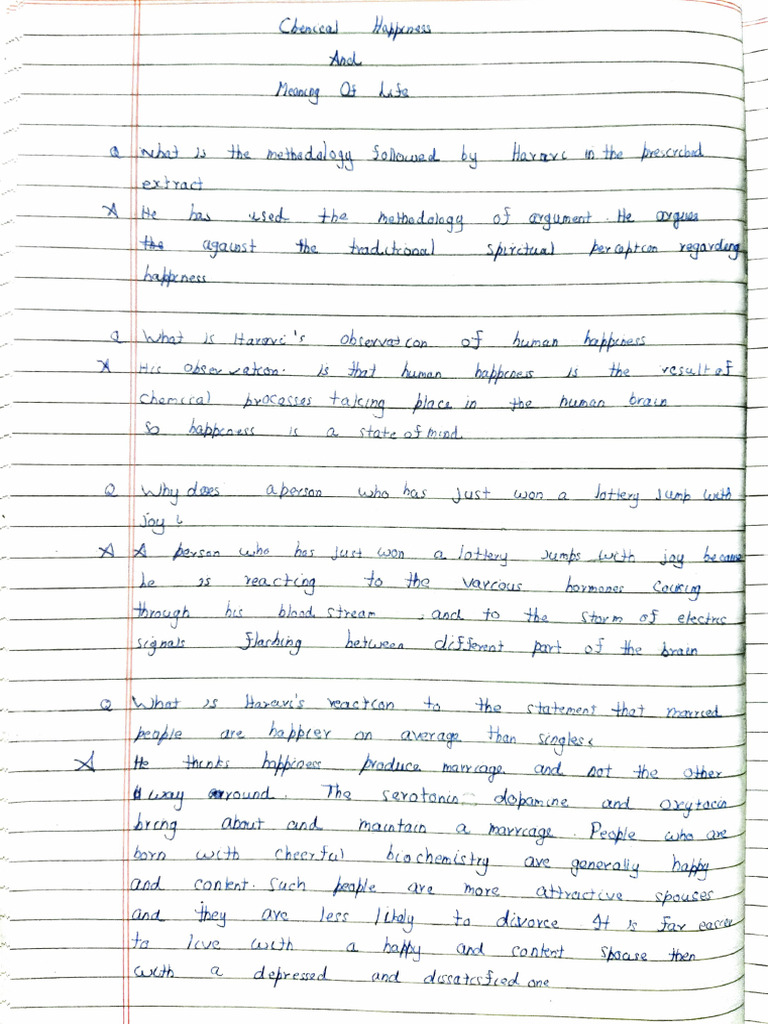 Chemical Happiness
And
Meaning Of Life
Q What is the methodology followed by Harari in the prescribed
extract
A He has used the methodology of argument. He argues
the against the traditional spiritual perception regarding
happiness
Q What is Harari's observation of human happiness
A His observation. is that human happiness is the result of
chemical processes taking place in the human brain
so happiness is a state of mind.
Q Why does a person who has just won a lottery jump with
joy ?
A A person who has just won a lottery jumps with joy because
he is reacting to the various hormones couring
through his blood stream, and to the storm of electric
signals flashing between different part of the brain
Q What is Harari's reaction to the statement that married
people are happier on average than singles?
A He thinks happiness produce marriage and not the other
way around. The serotonin, dopamine and oxytocin
bring about and maintain a marriage. People who are
born with cheerful biochemistry are generally happy
and content. Such people are more attractive spouses
and they are less likely to divorce It is far easier
to live with a happy and content spouse then
with a depressed and dissatisfied one